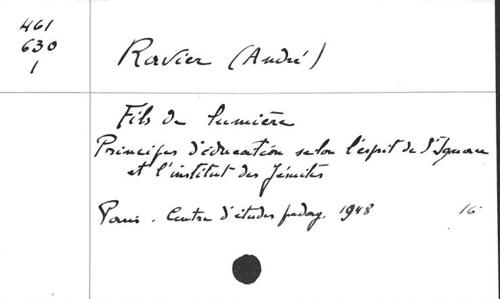 461
630
1
Ravier (André)
Fils de lumière
Principes d'éducation selon l'esprit de St Ignace
et l'institut des Jésuites
Paris. Centre d'études pedag. 1948 16